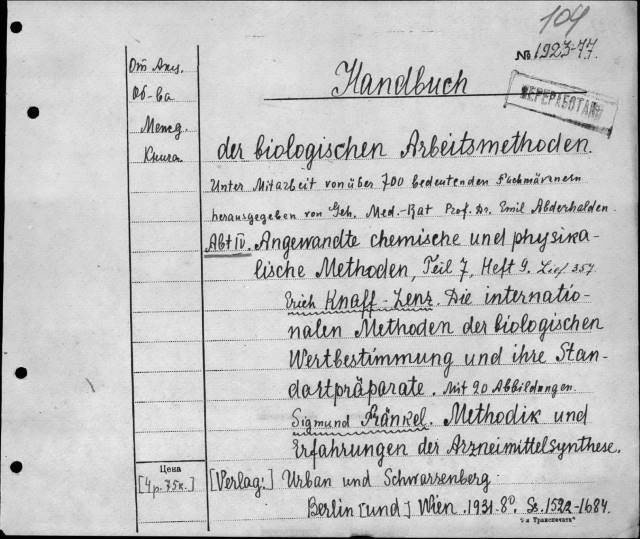 104
№ 1923-77.
ПЕРЕРАБОТАН
От Акц.
Об-ва
Межд.
Книга.
Handbuch
der biologischen Arbeitsmethoden.
Unter Mitarbeit von über 700 bedeutenden Fachmännern
herausgegeben von Geh. Med.-Rat Prof. Dr. Emil Abderhalden.
Abt IV. Angewandte chemische und physika-
lische Methoden, Teil 7, Heft 9. Lief 357
Erich Knaff-Lenz. Die internatio-
nalen Methoden der biologischen
Wertbestimmung und ihre Stan-
dartpräparate. Mit 20 Abbildungen.
Sigmund Fränkel. Methodik und
Erfahrungen der Arzneimittelsynthese.
Цена
[4 р. 75к.]
[Verlag:] Urban und Schwarsenberg
Berlin [und] Wien. 1931. 8°. Ss. 1522-1684.
"Транспечать"